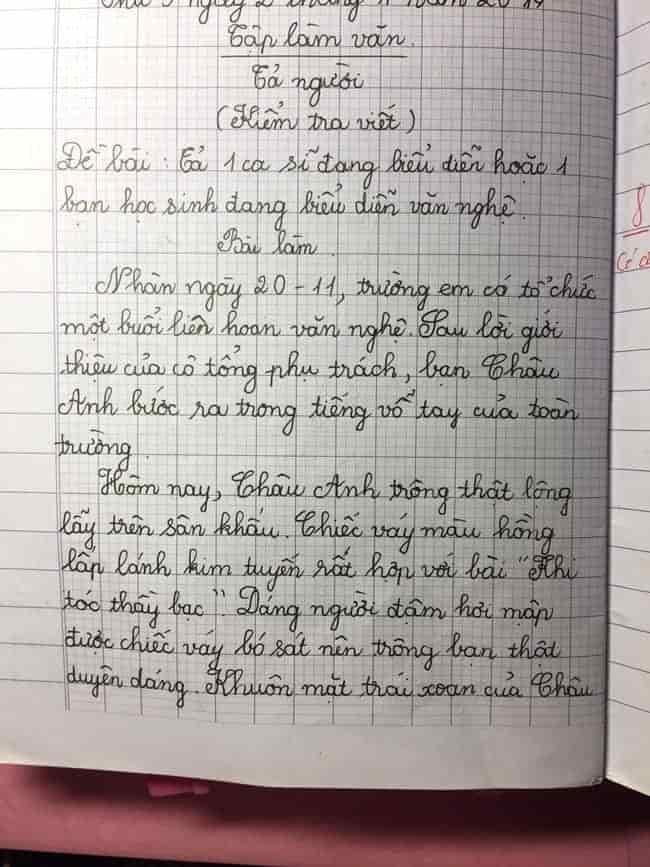 ngày 2 tháng 4 năm 2019
Tập làm văn.
Tả người
(Kiểm tra viết)
Đề bài: Tả 1 ca sĩ đang biểu diễn hoặc 1
bạn học sinh đang biểu diễn văn nghệ.
Bài làm.
Nhân ngày 20-11, trường em có tổ chức
một buổi liên hoan văn nghệ. Sau lời giới
thiệu của cô tổng phụ trách, bạn Châu
Anh bước ra trong tiếng vỗ tay của toàn
trường.
Hôm nay, Châu Anh trông thật lộng
lẫy trên sân khấu. Chiếc váy màu hồng
lấp lánh kim tuyến rất hợp với bài "Khi
tóc thầy bạc". Dáng người đậm hơi mập
được chiếc váy bó sát nên trông bạn thật
duyên dáng. Khuôn mặt trái xoan của Châu
8